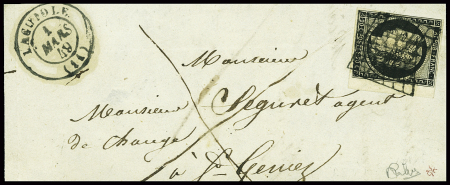 LAGUIOLE
1
MARS
49
(11)
Monsieur
Monsieur Séguret agent
de change
à St Geniez